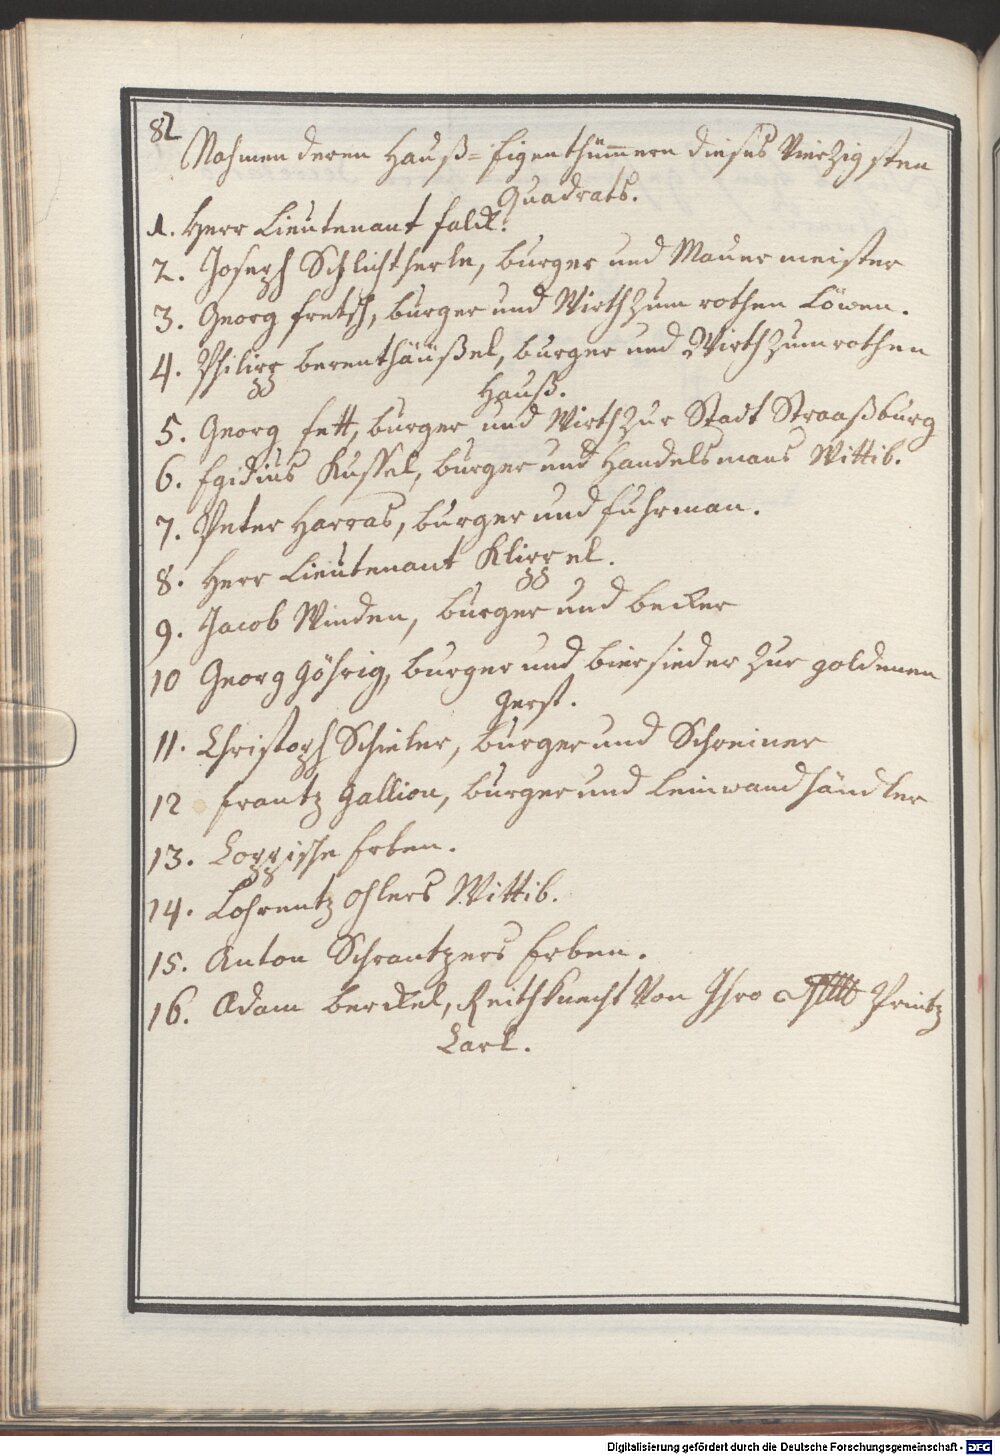 82
Nahmen deren Hauß= Eigenthümmern dieses Vierzigsten
Quadrats.
1. Herr Lieutenant Falck.
2. Joseph Schlichtherle, burger und Mauermeister
3. Georg Fretsch, burger und Wirth zum rothen Löwen.
4. Philipp berenthäußel, burger und Wirth zum rothen
Hauß.
5. Georg Fett, burger und Wirth zur Stadt Straaßburg
6. Egidius Kussel, burger und Handelsmans Wittib.
7. Peter Harras, burger und fuhrman.
8. Herr Lieutenant Klippel.
9. Jacob Winden, burger und becker
10 Georg Göhrig, burger und biersieder zur goldenen
Gerst.
11. Christoph Schieler, burger und Schreiner
12 Frantz Gallion, burger und leinwandhändler
13. Loppische Erben.
14. Lohrentz Ohlers Wittib.
15. Anton Schrantzers Erben.
16. Adam berckel, Reithknecht Von Ihro Printz
Carl.
Digitalisierung gefördert durch die Deutsche Forschungsgemeinschaft - DFG